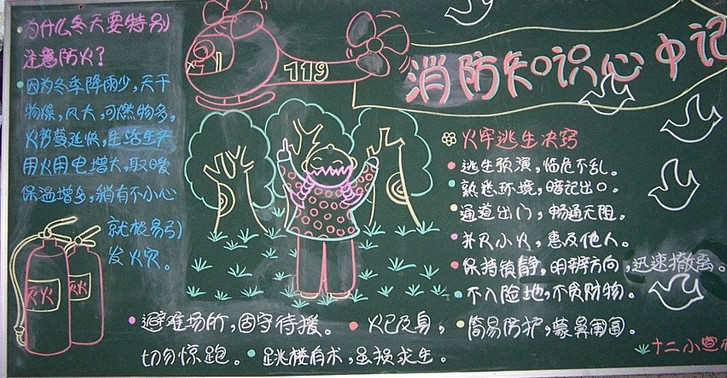 消防知识心中记
119
为什么冬天要特别
注意防火？
因为冬季降雨少，天干
物燥，风大，可燃物多，
火势蔓延快，生活生产
用火用电增大，取暖
保温增多，稍有不小心
就极易引
发火灾。
灭火
灭火
火灾逃生决窍
逃生预演，临危不乱。
熟悉环境，暗记出口。
通道出门，畅通无阻。
扑灭小火，惠及他人。
保持镇静，明辨方向，迅速撤离。
不入险地，不贪财物。
简易防护，蒙鼻匍匐。
避难场所，固守待援。 火已及身，
切勿惊跑。 跳楼有术，虽损求生。
十二小宣